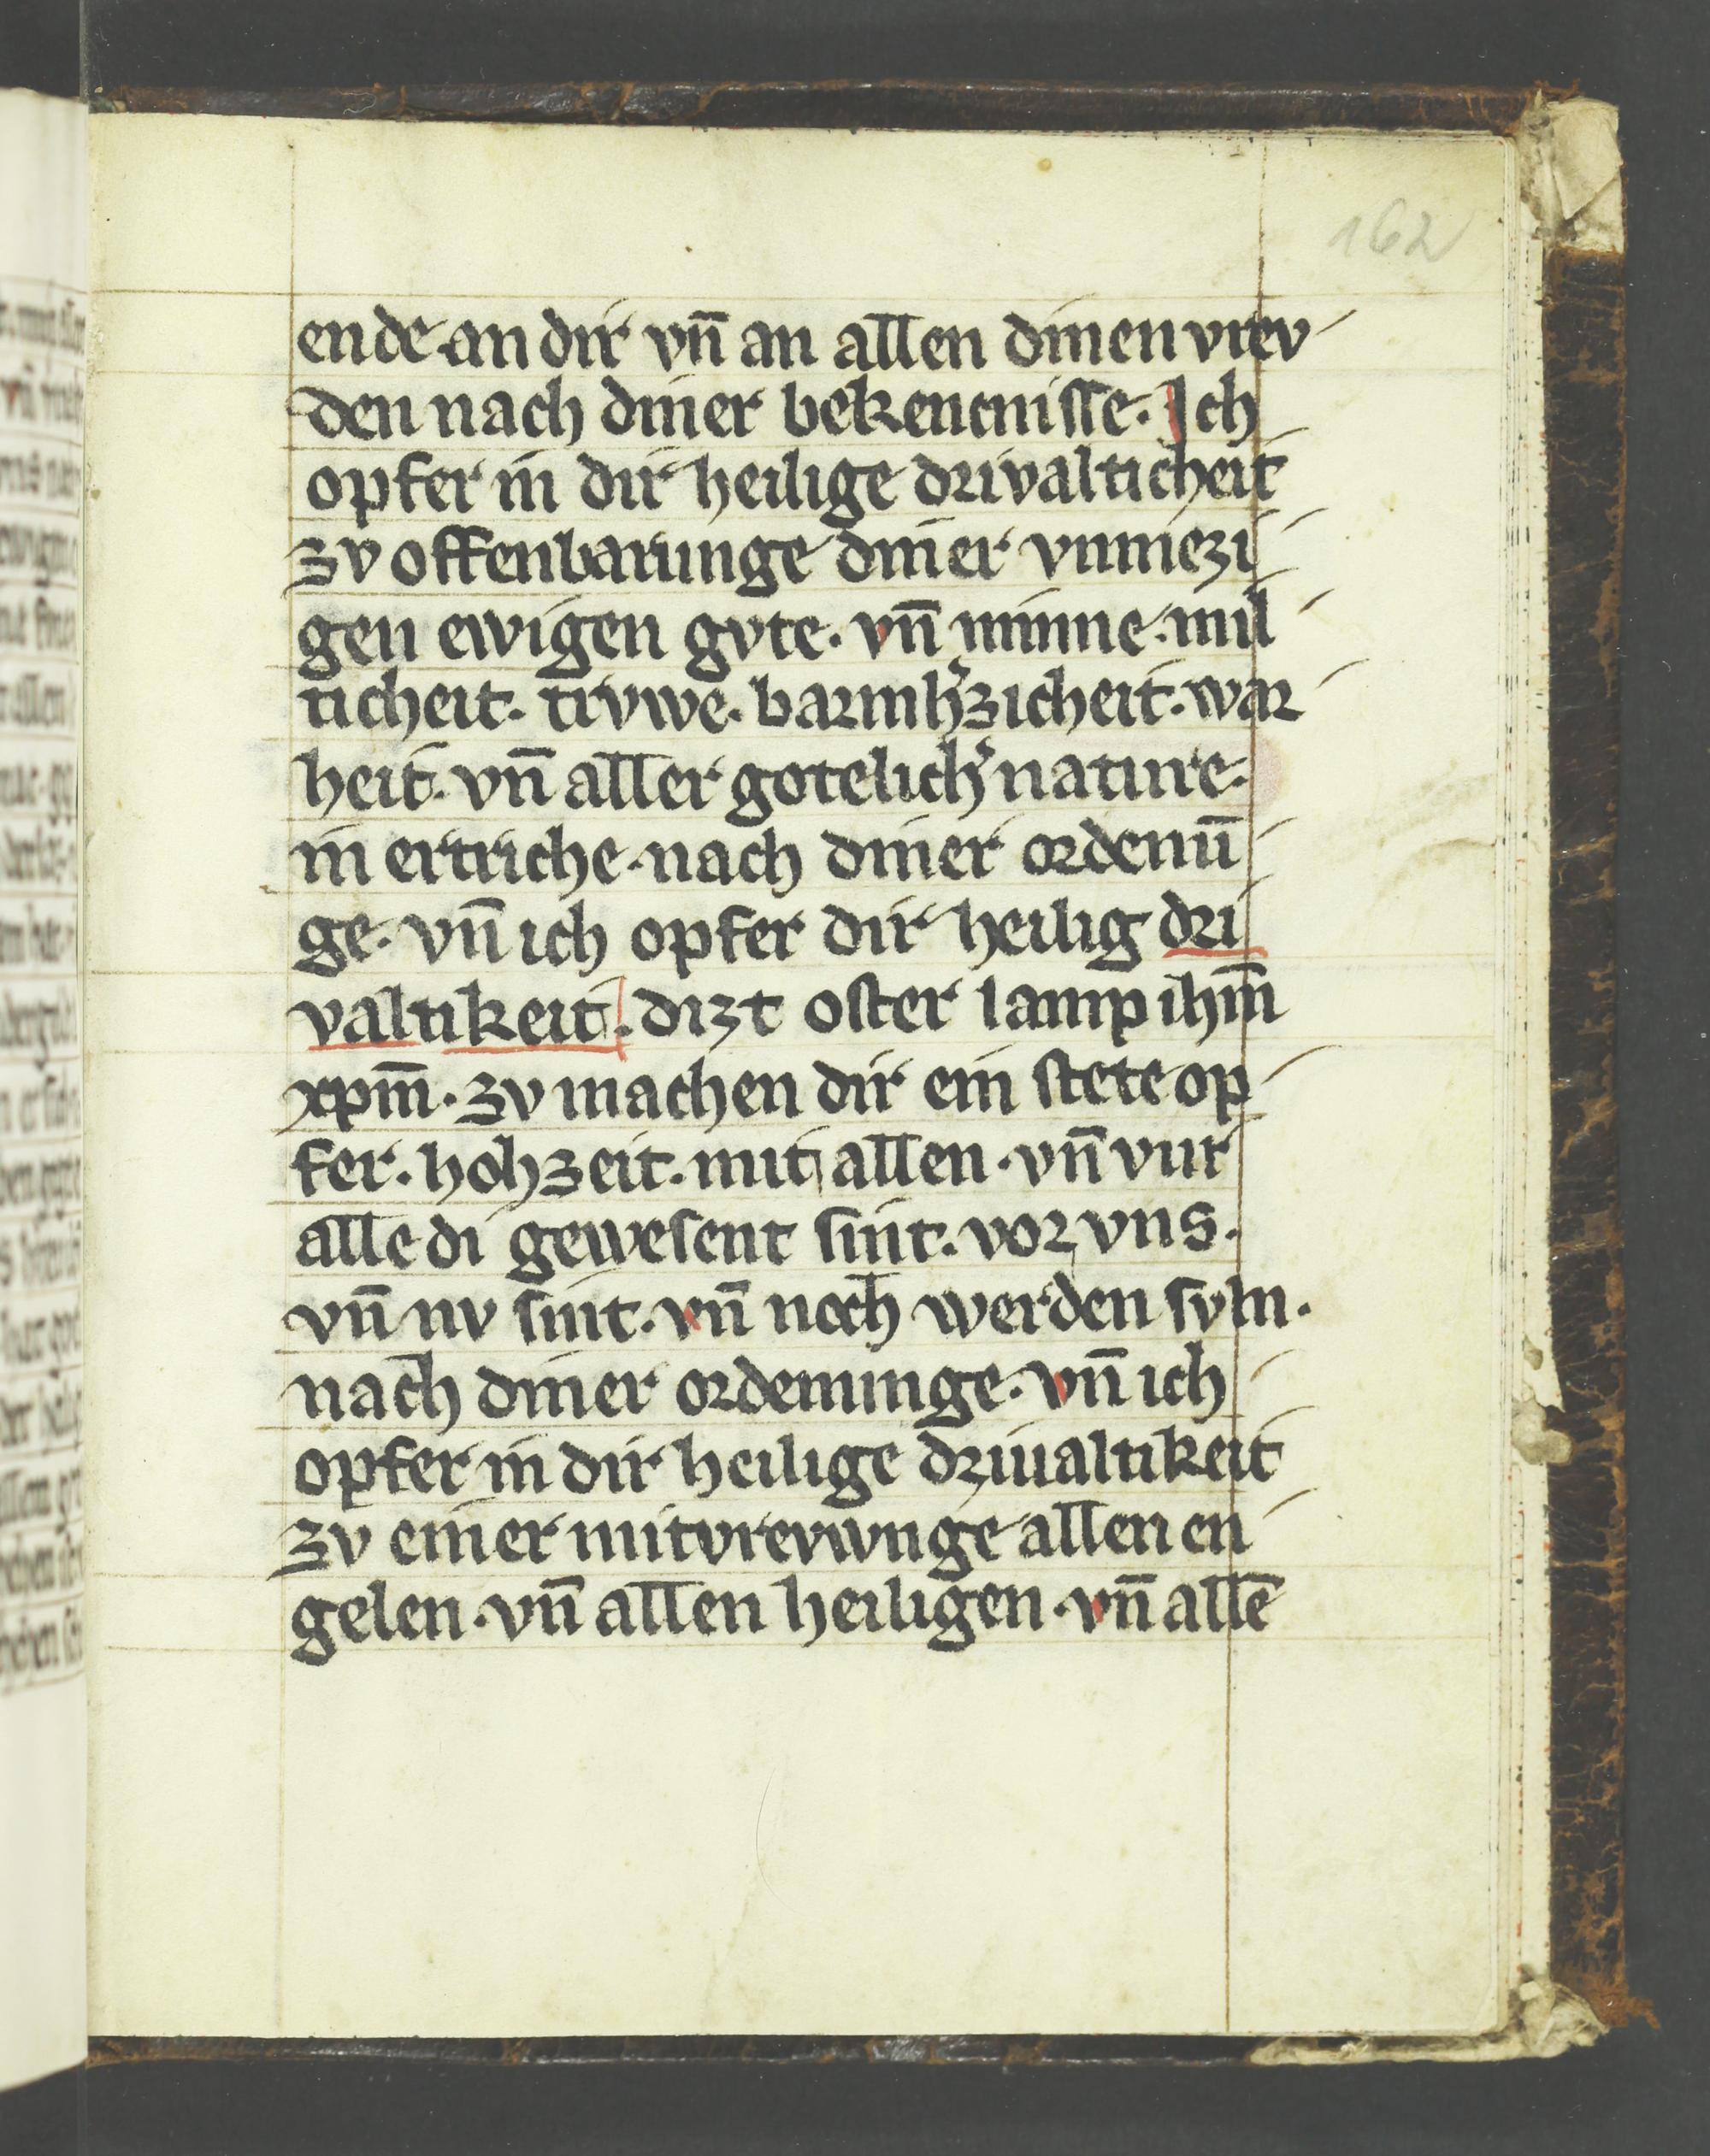 162
ende·an dir vn̄ an allen dinen vrev
den nach diner bekencnisse. Ich
opfer in dir heilige drivalticheit
zv offenbarunge diner vnmezi
gen ewigen gvte. vn̄ minne. mil
ticheit. trvwe. barmhꝰzicheit. war
heit. vn̄ aller gotelichꝰ nature.
in ertriche. nach diner ordenū
ge. vn̄ ich opfer dir heilig dri
valtikeit. dizt oster lamp ihm̄
xpm̄. zv machen dir ein stete op
fer. hohzeit. mit allen. vn̄ vur
alle di gewesent sint. vor vns.
vn̄ nv sint. vn̄ noch werden svln.
nach diner ordenunge. vn̄ ich
opfer in dir heilige driualtikeit
zv einer mitvrevwnge allen en
gelen. vn̄ allen heiligen. vn̄ allē